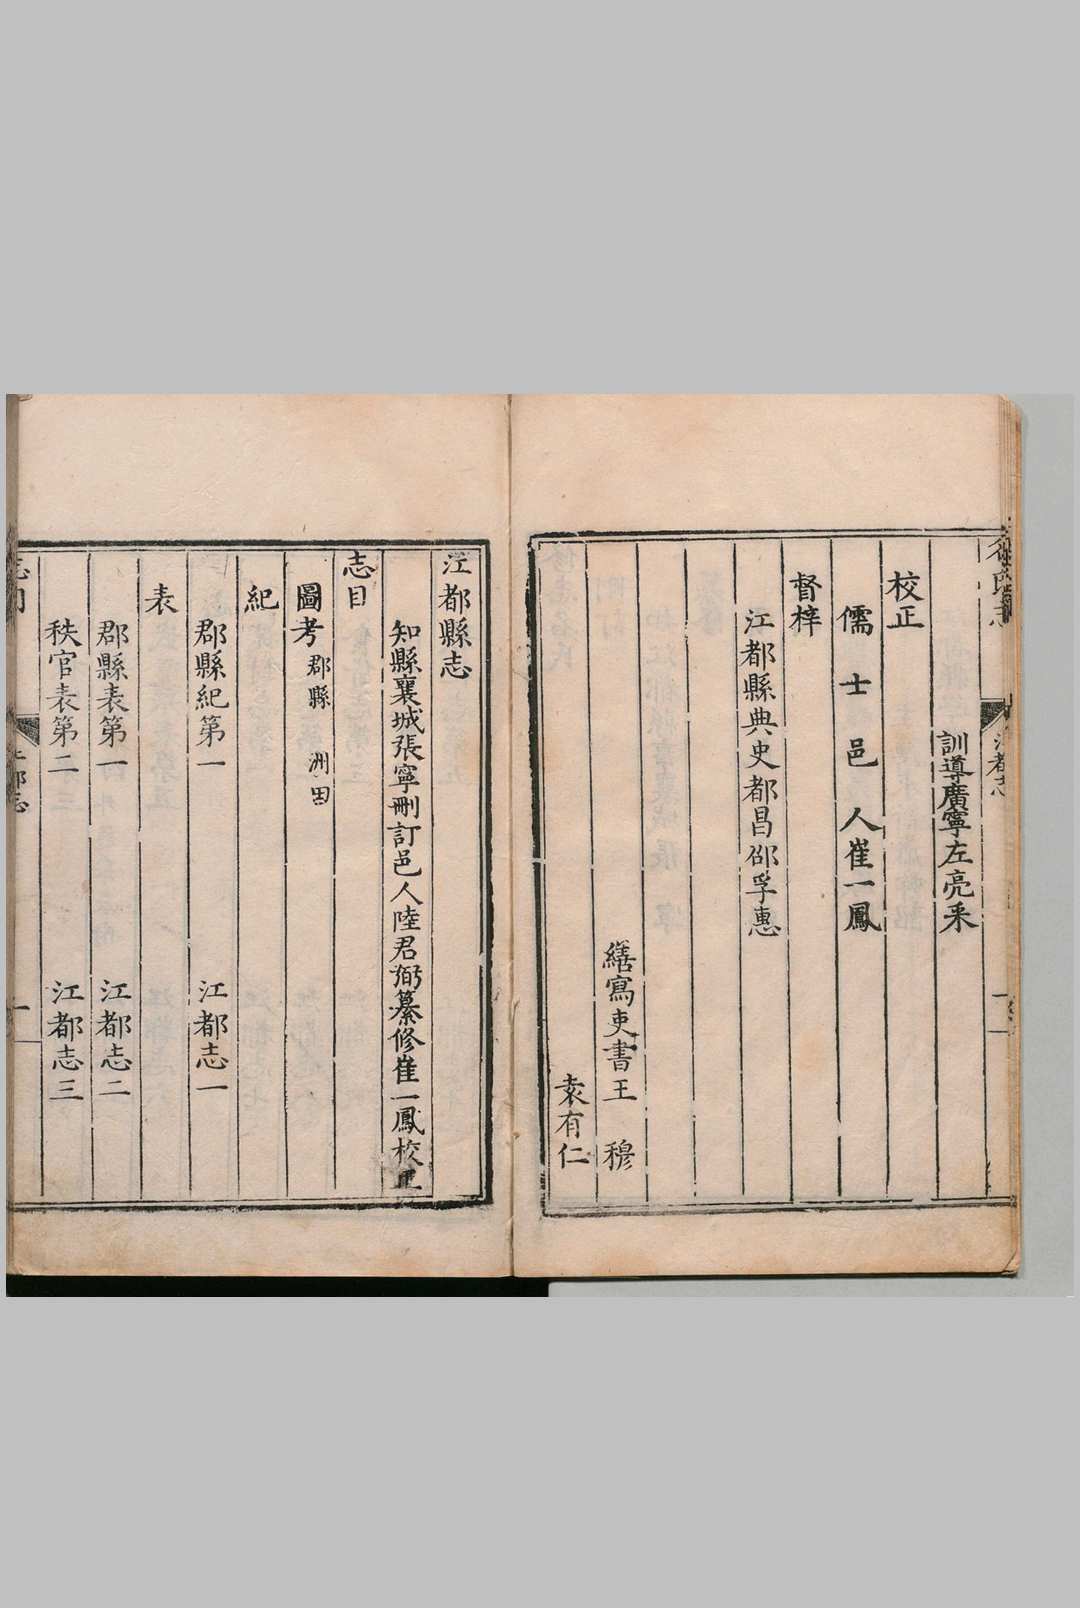 訓導廣寧左亮采
校正
儒士邑人崔一鳳
督梓
江都縣典史都昌邵孚惠
繕寫吏書王　穆
袁有仁
江都縣志
知縣襄城張寧刪訂邑人陸君弼纂修崔一鳳校正
志目
圖考 郡縣　洲田
紀
郡縣紀第一　江都志一
表
郡縣表第一　江都志二
秩官表第二　江都志三